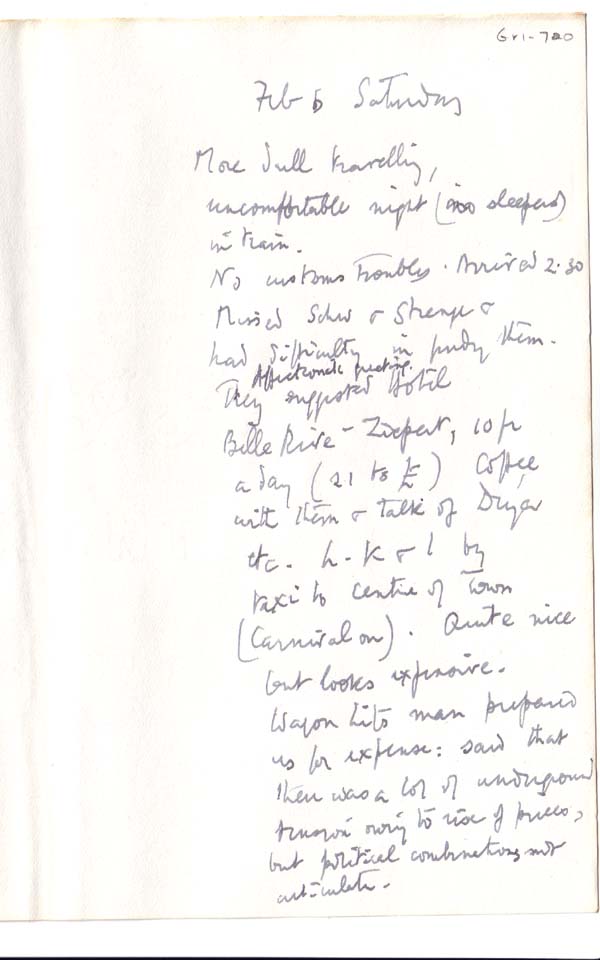 Gri-720
Feb 5 Saturday
More dull travelling,
uncomfortable night (no sleepers)
in train.
No customs troubles. Arrived 2.30
Missed Schw & Strange &
had difficulty in finding them.
Affectionate greeting.
They suggested Hotel
Belle Rive - , 10 fr
a day (21 to £) Coffee
with them & talk of
etc. L. K & I by
taxi to centre of Town
(Carnival on). Quite nice
but looks expensive.
Wagon Lits man prepared
us for expense: said that
there was a lot of underground
tension owing to rise of prices,
but political combinations not
articulate.